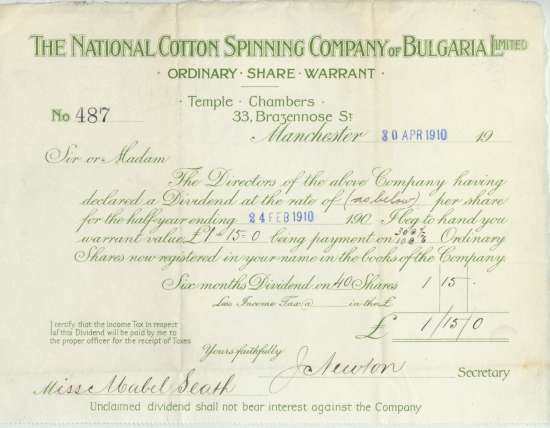 THE NATIONAL COTTON SPINNING COMPANY OF BULGARIA LIMITED
· ORDINARY · SHARE · WARRANT ·
· Temple · Chambers ·
33, Brazennose St.
No 487
Manchester 30 APR 1910 19
Sir or Madam
The Directors of the above Company having
declared a Dividend at the rate of (as below) per share
for the half year ending 24 FEB 1910 190 . I beg to hand you
warrant value £1-15-0 being payment on Ordinary
Shares now registered in your name in the books of the Company
Six months Dividend on 40 Shares 1 15 -
Less Income Tax @ in the £
£ 1/15/0
I certify that the Income Tax in respect
of this Dividend will be paid by me to
the proper officer for the receipt of Taxes
Yours faithfully
J Newton Secretary
Miss Mabel Seath
Unclaimed dividend shall not bear interest against the Company